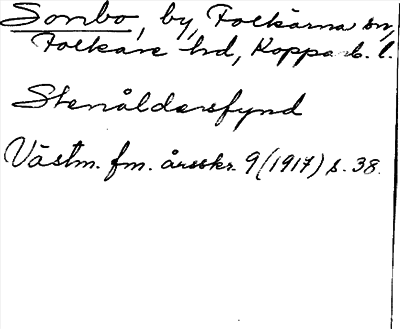 Sonbo, by, Folkärna sn,
Folkare hd, Kopparb. l.
Stenåldersfynd
Västm. fm. årsskr. 9 (1917) s. 38.